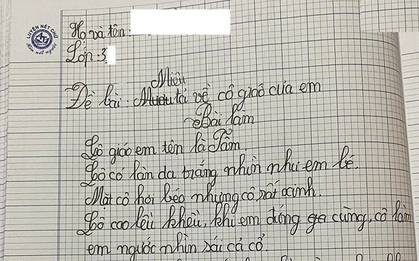 LUYỆN NÉT CHỮ
Họ và tên:
Lớp: 3
Miêu
Đề bài: tả về cô giáo của em
Bài làm
Cô giáo em tên là Tâm.
Cô có làn da trắng nhìn như em bé.
Mặt cô hơi béo nhưng cô rất xinh.
Cô cao lêu khêu, khi em đứng cùng, cô làm
em ngước nhìn cả cổ.